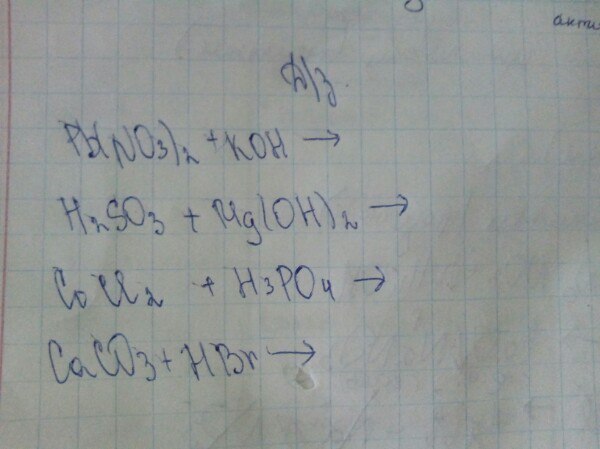 акти
Д/з.
Pb(NO3)2 + KOH →
H2SO3 + Mg(OH)2 →
CoCl2 + H3PO4 →
CaCO3 + HBr →